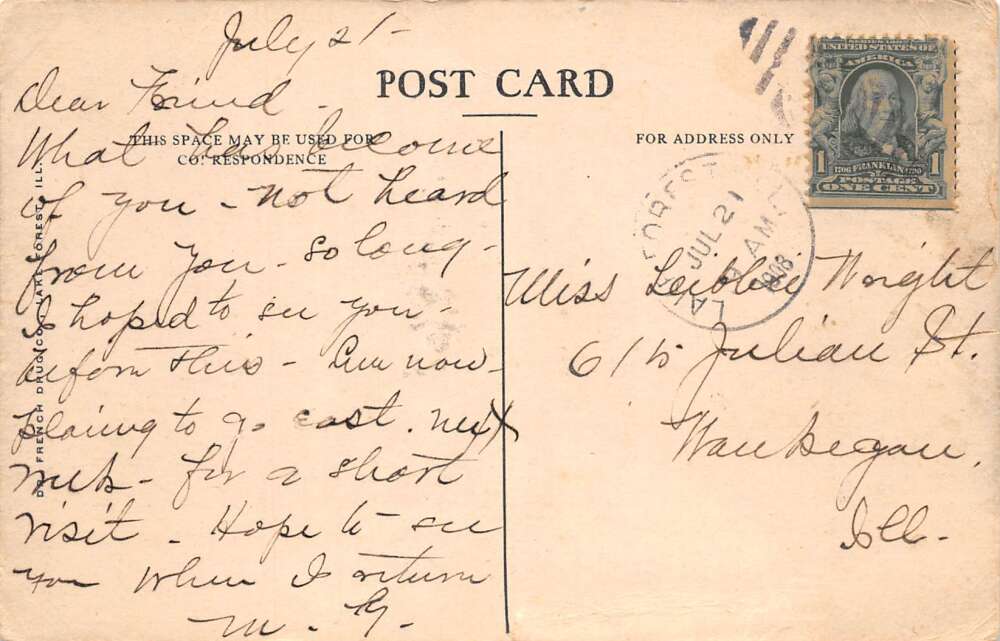 July 21 -
Dear Friend -
What has become
of you - not heard
from you - so long -
I hoped to see you -
before this - Am now -
planing to go east. next
week - for a short
visit - Hope to see
you when I return
M. G.
POST CARD
THIS SPACE MAY BE USED FOR
CORRESPONDENCE
FOR ADDRESS ONLY
FRENCH DRUG CO. LAKE FOREST, ILL.
SERIES 1902
UNITED STATES OF
AMERICA
1 1706 FRANKLIN 1790 1
POSTAGE
ONE CENT
LAKE FOREST
JUL 21
AM
1908
Miss Wright
615 Julian St.
Waukegan,
Ill -